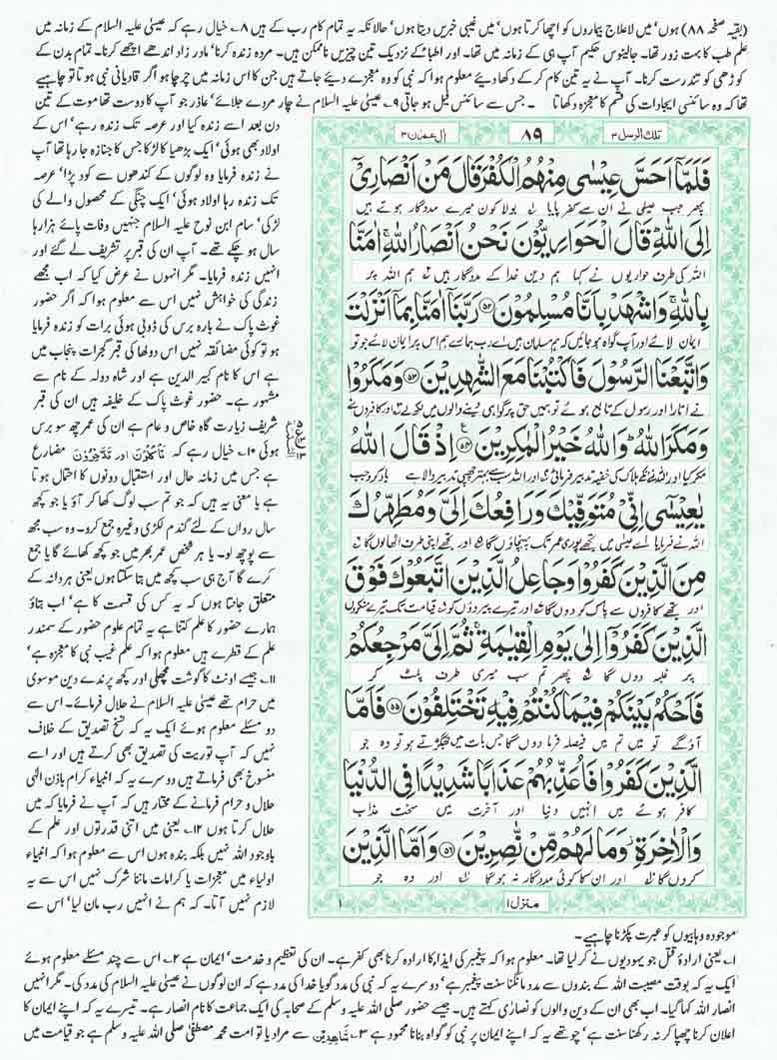 (بقیہ صفحہ ۸۸) ہوں' میں لاعلاج بیماروں کو اچھا کرتا ہوں' میں غیبی خبریں دیتا ہوں' حالانکہ یہ تمام کام رب کے ہیں ۸؎ خیال رہے کہ عیسیٰ علیہ السلام کے زمانہ میں
علم طب کا بہت زور تھا۔ جالینوس حکیم آپ ہی کے زمانہ میں تھا۔ اور اطباء کے نزدیک تین چیزیں ناممکن ہیں۔ مردہ زندہ کرنا' مادر زاد اندھے اچھے کرنا۔ تمام بدن کے
کوڑھی کو تندرست کرنا۔ آپ نے یہ تین کام کر کے دکھا دیئے معلوم ہوا کہ نبی کو وہ معجزے دیئے جاتے ہیں جن کا اس زمانہ میں چرچا ہو اگر قادیانی نبی ہوتا تو چاہیے
تھا کہ وہ سائنسی ایجادات کی قسم کا معجزہ دکھاتا ۔ جس سے سائنس فیل ہو جاتی ۹؎ عیسیٰ علیہ السلام نے چار مردے جلائے' عاذر جو آپ کا دوست تھا موت کے تین
دن بعد اسے زندہ کیا اور عرصہ تک زندہ رہے' اس کے
اولاد بھی ہوئی' ایک بڑھیا کا لڑکا جس کا جنازہ جا رہا تھا آپ
نے زندہ فرمایا وہ لوگوں کے کندھوں سے کود پڑا' عرصہ
تک زندہ رہا اولاد ہوئی' ایک چنگی کے محصول والے کی
لڑکی' سام ابن نوح علیہ السلام جنہیں وفات پائے ہزارہا
سال ہو چکے تھے۔ آپ ان کی قبر پر تشریف لے گئے اور
انہیں زندہ فرمایا۔ مگر انہوں نے عرض کیا کہ اب مجھے
زندگی کی خواہش نہیں اس سے معلوم ہوا کہ اگر حضور
غوث پاک نے بارہ برس کی ڈوبی ہوئی برات کو زندہ فرمایا
ہو تو کوئی مضائقہ نہیں اس دولھا کی قبر گجرات پنجاب میں
ہے اس کا نام کبیر الدین ہے اور شاہ دولہ کے نام سے
مشہور ہے۔ حضور غوث پاک کے خلیفہ ہیں ان کی قبر
شریف زیارت گاہ خاص و عام ہے ان کی عمر چھ سو برس
ہوئی ۱۰؎ خیال رہے کہ تَاْكُلُوْنَ اور تَدَّخِرُوْنَ مضارع
ہے جس میں زمانہ حال اور استقبال دونوں کا احتمال ہوتا
ہے یا معنی یہ ہیں کہ جو تم سب لوگ کھا کر آؤ یا جو کچھ
سال رواں کے لئے گندم لکڑی وغیرہ جمع کرو۔ وہ سب مجھ
سے پوچھ لو۔ یا ہر شخص عمر بھر میں جو کچھ کھائے گا یا جمع
کرے گا آج ہی سب کچھ میں بتا سکتا ہوں یعنی ہر دانہ کے
متعلق جانتا ہوں کہ یہ کس کی قسمت کا ہے' اب بتاؤ
ہمارے حضور کا علم کتنا ہے یہ تمام علوم حضور کے سمندر
علم کے قطرے ہیں معلوم ہوا کہ علم غیب نبی کا معجزہ ہے'
۱۱؎ جیسے اونٹ کا گوشت مچھلی اور کچھ پرندے دین موسوی
میں حرام تھے عیسیٰ علیہ السلام نے حلال فرمائے۔ اس سے
دو مسئلے معلوم ہوئے ایک یہ کہ نسخ تصدیق کے خلاف
نہیں کہ آپ توریت کی تصدیق بھی کرتے ہیں اور اسے
منسوخ بھی فرماتے ہیں دوسرے یہ کہ انبیاء کرام باذن الٰہی
حلال و حرام فرمانے کے مختار ہیں کہ آپ نے فرمایا کہ میں
حلال کرتا ہوں ۱۲؎ یعنی میں اتنی قدرتوں اور علم کے
باوجود اللہ نہیں بلکہ بندہ ہوں اس سے معلوم ہوا کہ انبیاء
اولیاء میں معجزات یا کرامات ماننا شرک نہیں اس سے یہ
لازم نہیں آتا۔ کہ ہم نے انہیں رب مان لیا' اس سے
موجودہ وہابیوں کو عبرت پکڑنا چاہیے۔
تلك الرسل ۳ ۸۹ اٰل عمران ۳
فَلَمَّآ اَحَسَّ عِيْسٰى مِنْهُمُ الْكُفْرَ قَالَ مَنْ اَنْصَارِيْٓ
پھر جب عیسیٰ نے ان سے کفر پایا بولا کون میرے مددگار ہوتے ہیں
اِلَى اللّٰهِ ؕ قَالَ الْحَوَارِيُّوْنَ نَحْنُ اَنْصَارُ اللّٰهِ ۚ اٰمَنَّا
اللہ کی طرف حواریوں نے کہا ہم دین خدا کے مددگار ہیں ہم اللہ پر
بِاللّٰهِ ۚ وَاشْهَدْ بِاَنَّا مُسْلِمُوْنَ ﴿۵۲﴾ رَبَّنَآ اٰمَنَّا بِمَآ اَنْزَلْتَ
ایمان لائے اور آپ گواہ ہو جائیں کہ ہم مسلمان ہیں اے رب ہمارے ہم اس پر ایمان لائے جو تو
وَاتَّبَعْنَا الرَّسُوْلَ فَاكْتُبْنَا مَعَ الشّٰهِدِيْنَ ﴿۵۳﴾ وَمَكَرُوْا
نے اتارا اور رسول کے تابع ہوئے تو ہمیں حق پر گواہی دینے والوں میں لکھ لے اور کافروں نے
وَمَكَرَ اللّٰهُ ؕ وَاللّٰهُ خَيْرُ الْمٰكِرِيْنَ ﴿۵۴﴾ اِذْ قَالَ اللّٰهُ
مکر کیا اور اللہ نے انکے ہلاک کی خفیہ تدبیر فرمائی اور اللہ سب سے بہتر چھپی تدبیر والا ہے یاد کرو جب
يٰعِيْسٰٓى اِنِّيْ مُتَوَفِّيْكَ وَرَافِعُكَ اِلَيَّ وَمُطَهِّرُكَ
اللہ نے فرمایا اے عیسیٰ میں تجھے پوری عمر تک پہنچاؤں گا اور تجھے اپنی طرف اٹھالوں گا
مِنَ الَّذِيْنَ كَفَرُوْا وَجَاعِلُ الَّذِيْنَ اتَّبَعُوْكَ فَوْقَ
اور تجھے کافروں سے پاک کردوں گا اور تیرے پیرووں کو قیامت تک تیرے منکروں
الَّذِيْنَ كَفَرُوْٓا اِلٰى يَوْمِ الْقِيٰمَةِ ۚ ثُمَّ اِلَيَّ مَرْجِعُكُمْ
پر غلبہ دوں گا پھر تم سب میری طرف پلٹ کر
فَاَحْكُمُ بَيْنَكُمْ فِيْمَا كُنْتُمْ فِيْهِ تَخْتَلِفُوْنَ ﴿۵۵﴾ فَاَمَّا
آؤ گے تو میں تم میں فیصلہ فرما دوں گا جس بات میں جھگڑتے ہو تو وہ جو
الَّذِيْنَ كَفَرُوْا فَاُعَذِّبُهُمْ عَذَابًا شَدِيْدًا فِي الدُّنْيَا
کافر ہوئے میں انہیں دنیا اور آخرت میں سخت عذاب
وَالْاٰخِرَةِ ؗ وَمَا لَهُمْ مِّنْ نّٰصِرِيْنَ ﴿۵۶﴾ وَاَمَّا الَّذِيْنَ
کروں گا اور ان کا کوئی مددگار نہ ہوگا اور وہ جو
منزل ۱
۱؎ یعنی ارادۂ قتل جو یہودیوں نے کر لیا تھا۔ معلوم ہوا کہ پیغمبر کی ایذا کا ارادہ کرنا بھی کفر ہے۔ ان کی تعظیم و خدمت' ایمان ہے ۲؎ اس سے چند مسئلے معلوم ہوئے
ایک یہ کہ بوقت مصیبت اللہ کے بندوں سے مدد مانگنا سنت پیغمبر ہے' دوسرے یہ کہ نبی کی مدد گویا خدا کی مدد ہے کہ ان لوگوں نے عیسیٰ علیہ السلام کی مدد کی۔ مگر انہیں
انصار اللہ کہا گیا۔ اب بھی ان کے دین والوں کو نصاریٰ کہتے ہیں۔ جیسے حضور صلی اللہ علیہ وسلم کے صحابہ کی ایک جماعت کا نام انصار ہے۔ تیسرے یہ کہ اپنے ایمان کا
اعلان کرنا چھپا کر نہ رکھنا سنت ہے' چوتھے یہ کہ اپنے ایمان پر نبی کو گواہ بنانا محمود ہے ۳؎ شَاهِدِيْن سے مراد یا تو امت محمد مصطفیٰ صلی اللہ علیہ وسلم ہے جو قیامت میں